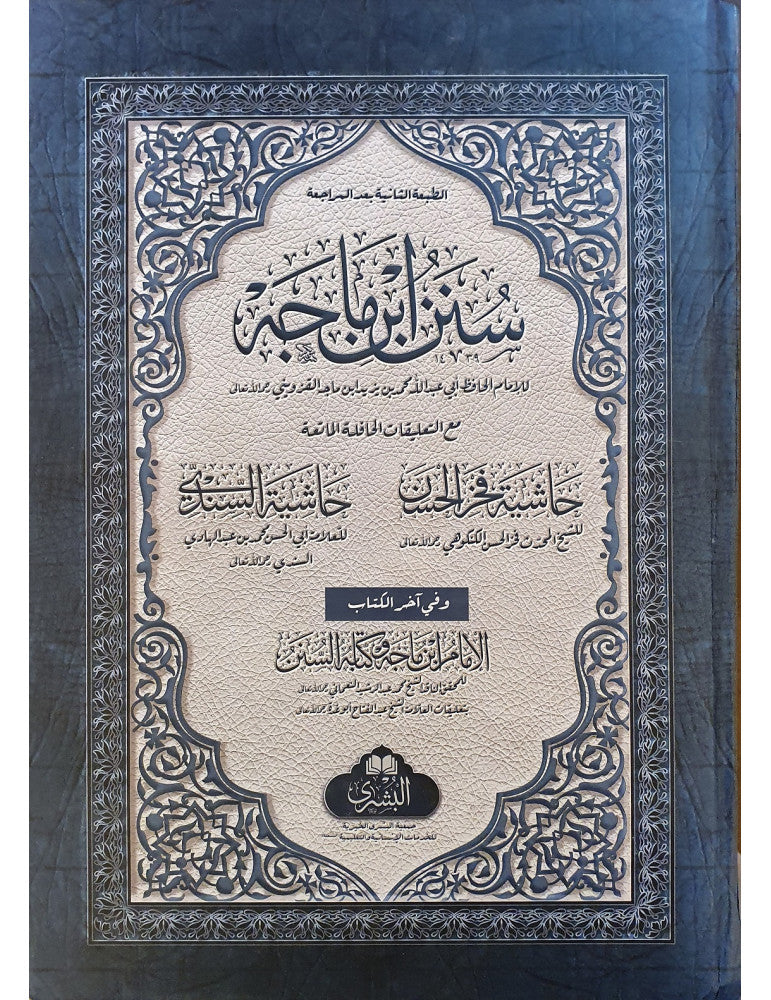 الطبعة الثانية بعد المراجعة
سُنَنُ ابْنِ مَاجَهْ
١٤٣٩
للإمام الحافظ أبي عبد الله محمد بن يزيد ابن ماجه القزويني رحمه الله تعالى
مع التعليقات الحافلة الماتعة
حاشية فخر الحسن
للشيخ المحدث فخر الحسن الكنكوهي رحمه الله تعالى
حاشية السِّنديّ
للعلامة أبي الحسن محمد بن عبد الهادي
السندي رحمه الله تعالى
وفي آخر الكتاب
الإمام ابن ماجه وكتابه السنن
للمحقق الناقد الشيخ محمد عبد الرشيد النعماني رحمه الله تعالى
بتعليقات العلامة الشيخ عبد الفتاح أبو غدة رحمه الله تعالى
البُشرى
جمعية البشرى الخيرية
للخدمات الإنسانية والتعليمية